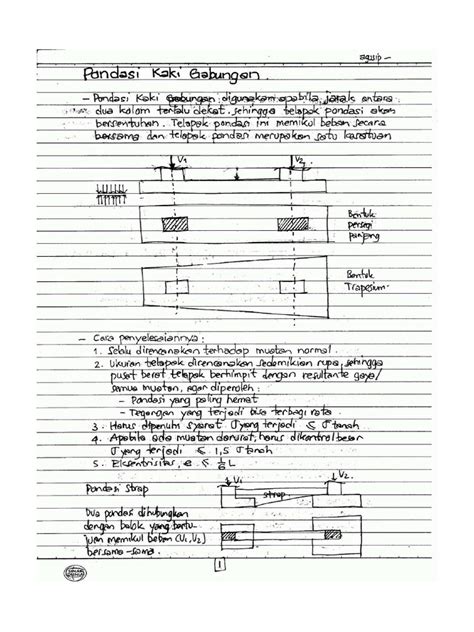 agusip -
Pondasi Kaki Gabungan.
- Pondasi Kaki Gabungan digunakan apabila jarak antara
dua kolom terlalu dekat, sehingga telapak pondasi akan
bersentuhan. Telapak pondasi ini memikul beban secara
bersama dan telapak pondasi merupakan satu kesatuan
V1
V2
Bentuk
persegi
panjang
Bentuk
Trapesium
- Cara penyelesaiannya :
1. Selalu direncanakan terhadap muatan normal
2. Ukuran telapak direncanakan sedemikian rupa, sehingga
pusat berat telapak berhimpit dengan resultante gaya/
semua muatan, agar diperoleh :
- Pondasi yang paling hemat
- Tegangan yang terjadi bisa terbagi rata
3. Harus dipenuhi syarat σ yang terjadi ≤ σ tanah
4. Apabila ada muatan darurat, harus dikontrol besar
σ yang terjadi ≤ 1,5 σ tanah
5. Eksentrisitas, e ≤ 1/6 L
Pondasi Strap
V1
strap
V2.
Dua pondasi dihubungkan
dengan balok yang bertu-
juan memikul beban (V1, V2)
bersama-sama.
1